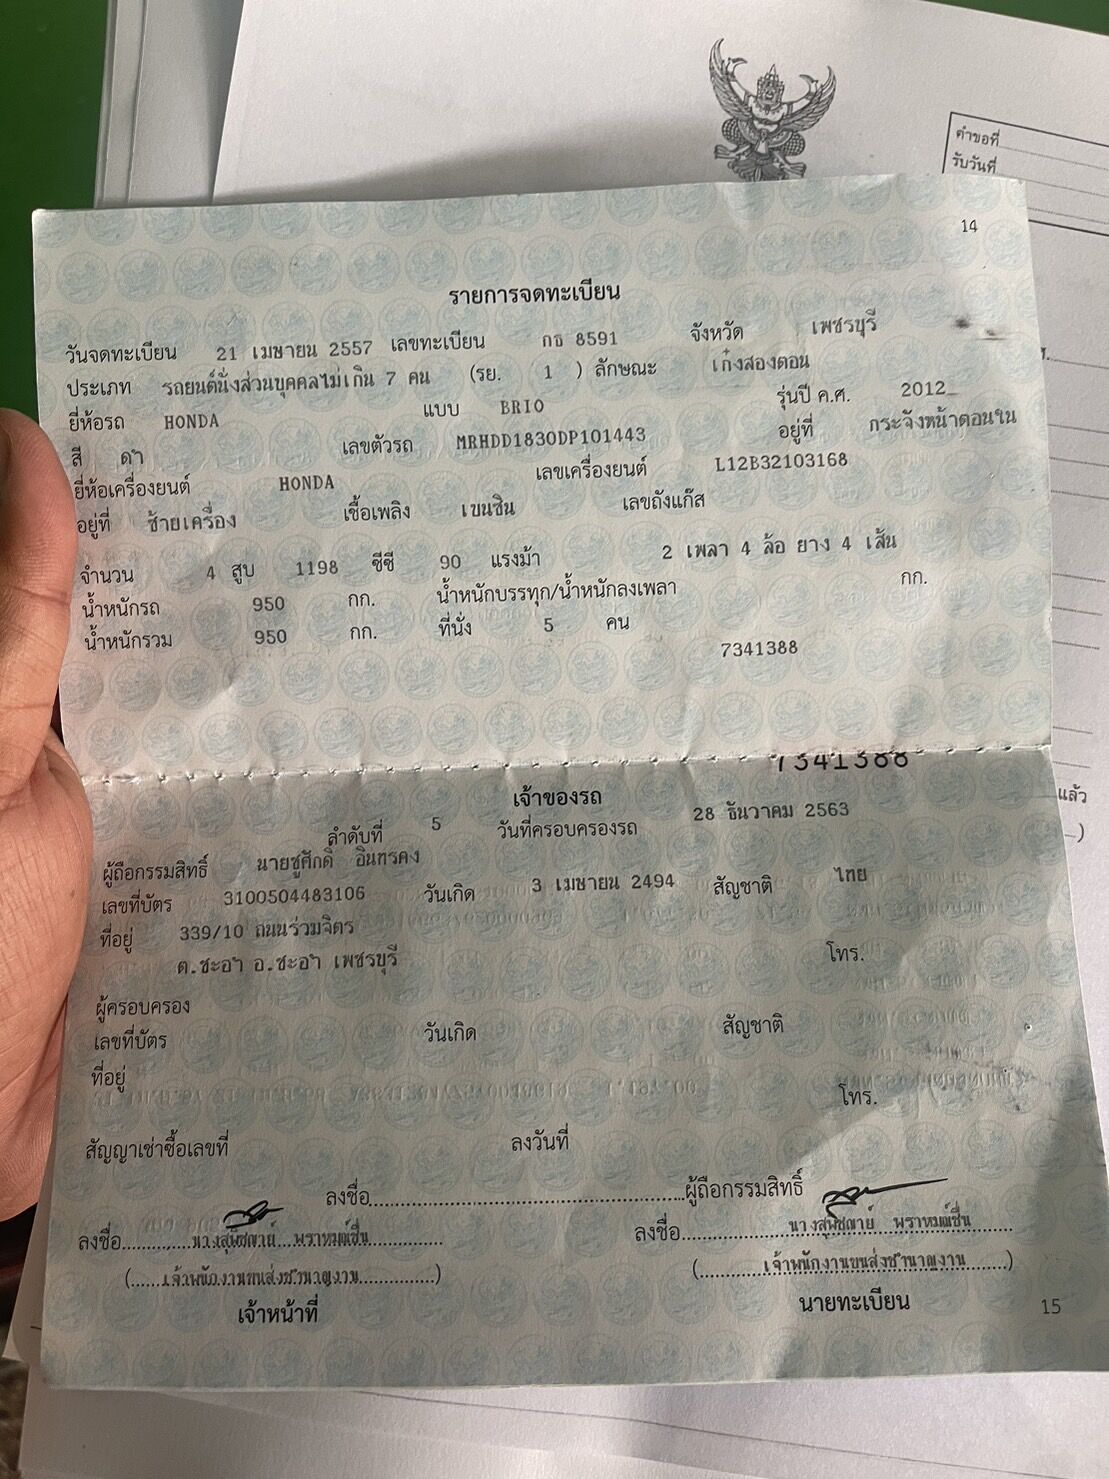 คำขอที่
รับวันที่
14
รายการจดทะเบียน
วันจดทะเบียน 21 เมษายน 2557 เลขทะเบียน กธ 8591 จังหวัด เพชรบุรี
ประเภท รถยนต์นั่งส่วนบุคคลไม่เกิน 7 คน (รย. 1 ) ลักษณะ เก๋งสองตอน
ยี่ห้อรถ HONDA แบบ BRIO รุ่นปี ค.ศ. 2012
สี ดำ เลขตัวรถ MRHDD1830DP101443 อยู่ที่ กระจังหน้าตอนใน
ยี่ห้อเครื่องยนต์ HONDA เลขเครื่องยนต์ L12B32103168
อยู่ที่ ซ้ายเครื่อง เชื้อเพลิง เบนซิน เลขถังแก๊ส
จำนวน 4 สูบ 1198 ซีซี 90 แรงม้า 2 เพลา 4 ล้อ ยาง 4 เส้น
น้ำหนักรถ 950 กก. น้ำหนักบรรทุก/น้ำหนักลงเพลา กก.
น้ำหนักรวม 950 กก. ที่นั่ง 5 คน
7341388
7341388
แล้ว
เจ้าของรถ
ลำดับที่ 5 วันที่ครอบครองรถ 28 ธันวาคม 2563
ผู้ถือกรรมสิทธิ์ นายชูศักดิ์ อินทรคง
เลขที่บัตร 3100504483106 วันเกิด 3 เมษายน 2494 สัญชาติ ไทย
ที่อยู่ 339/10 ถนนร่วมจิตร
ต.ชะอำ อ.ชะอำ เพชรบุรี โทร.
ผู้ครอบครอง
เลขที่บัตร วันเกิด สัญชาติ
ที่อยู่
โทร.
สัญญาเช่าซื้อเลขที่ ลงวันที่
ลงชื่อ ผู้ถือกรรมสิทธิ์
ลงชื่อ นางสุพิชฌาย์ พราหมณ์ชื่น ลงชื่อ นางสุพิชฌาย์ พราหมณ์ชื่น
(เจ้าพนักงานขนส่งชำนาญงาน) (เจ้าพนักงานขนส่งชำนาญงาน)
เจ้าหน้าที่ นายทะเบียน
15